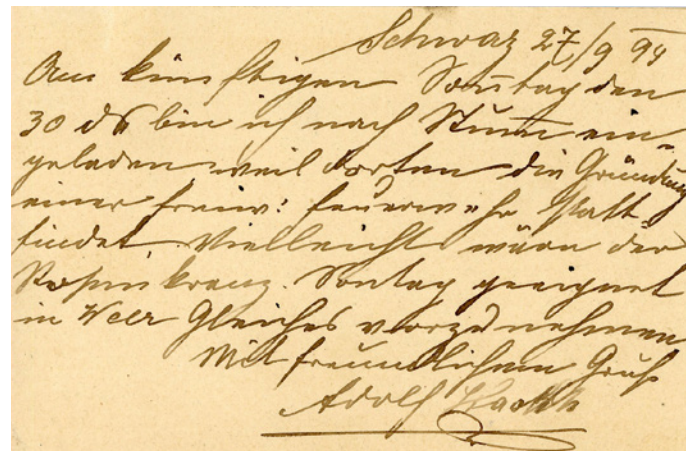 Schwaz 27/9 94
Am künftigen Sontag den
30 ds bin ich nach Stumm ein-
geladen weil dorten die Gründung
einer freiw: Feuerwehr statt
findet. Vielleicht wärn der
Rosenkranz. Sontag geeignet
in Weer Gleiches vorzunehmen
Mit freundlichem Gruß
Adolf